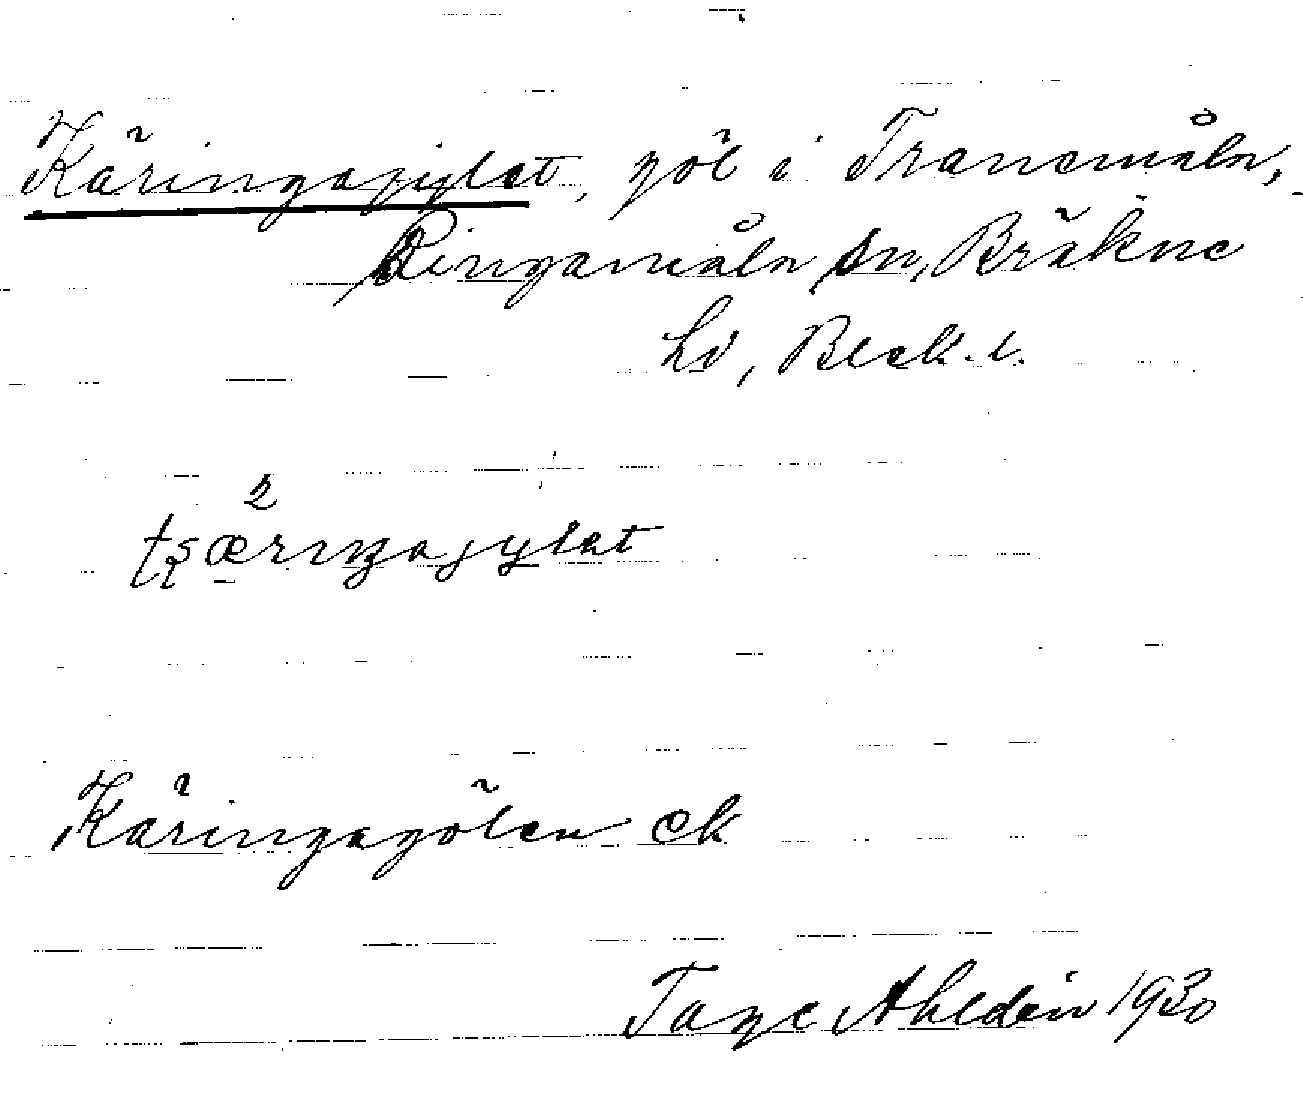 Käringagylet, göl i Tranemåln,
Ringamåln sn, Bräkne
hd, Blek. l.
2
tʂæringajylət
Käringagölen ek
Tage Ahldén 1930